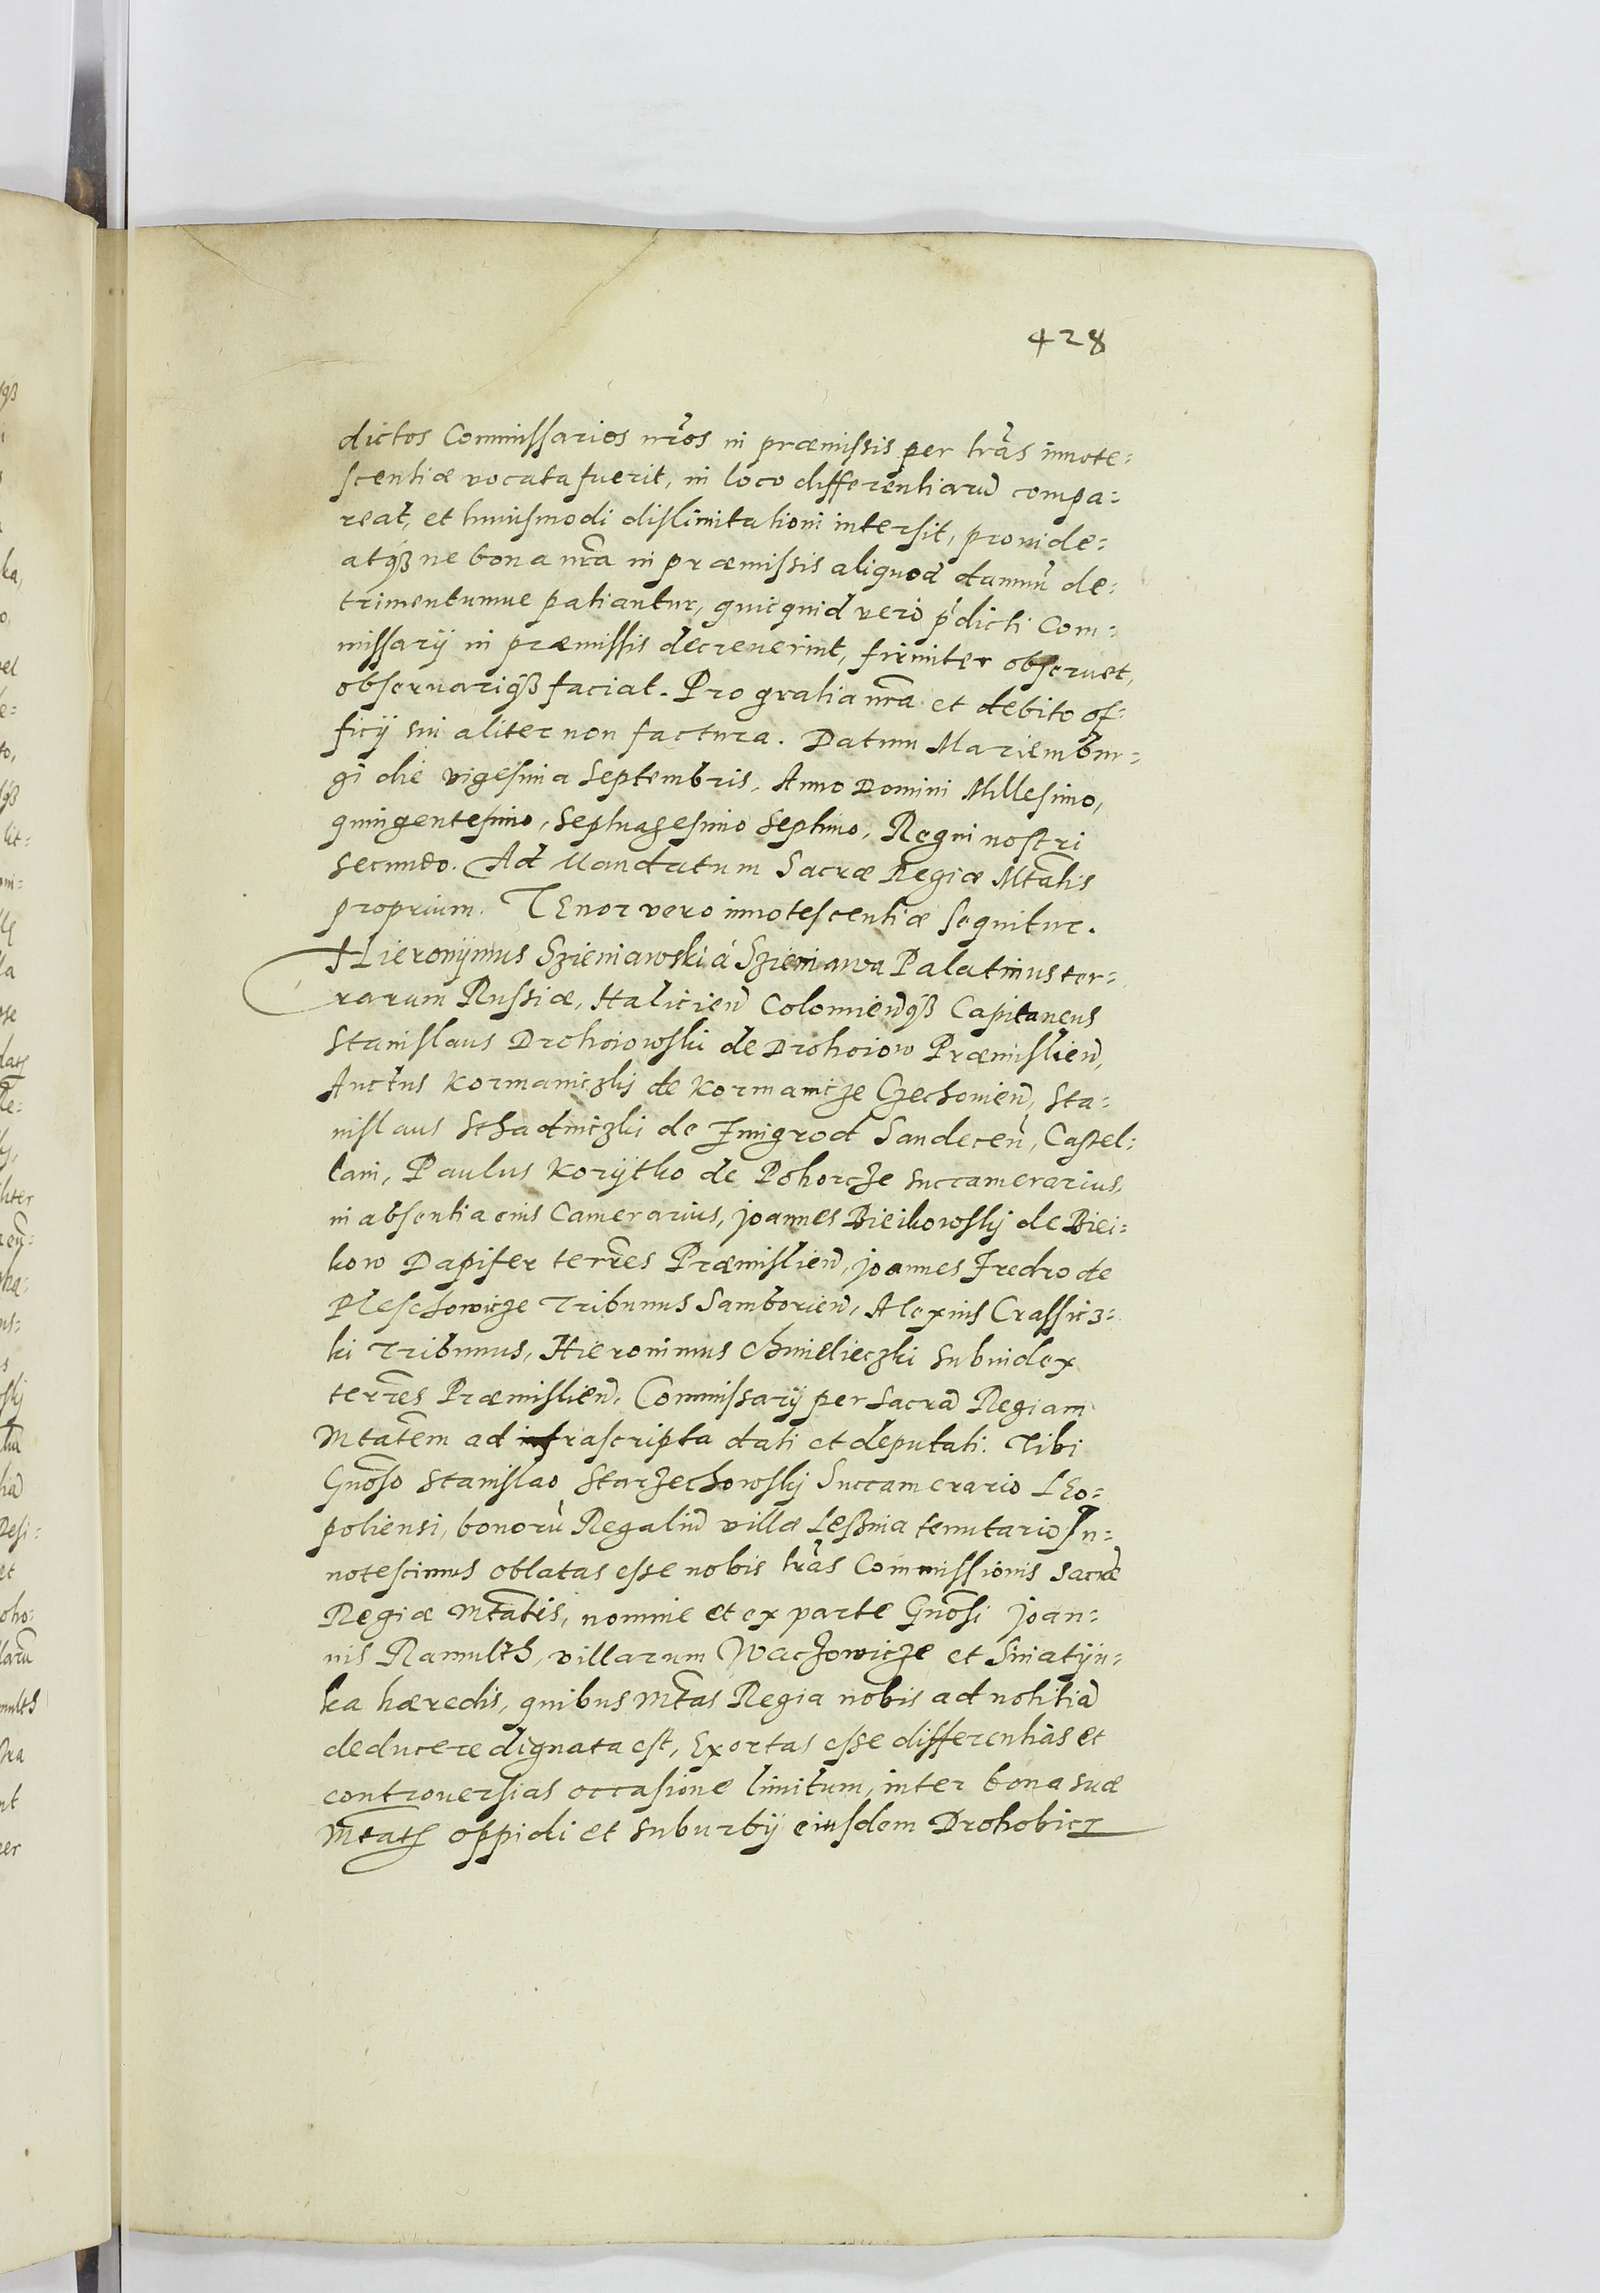 428
dictos Commissarios nr̃os in præmissis per lrãs innote=
scentiæ vocata fuerit, in loco differentiarũ compa=
reat, et huiusmodi dislimitationi intersit, prouide=
atq3 ne bona nr̃a in præmissis aliquod damnũ de=
trimentumue patiantur, quicquid vero p̃dicti Com=
missarij in præmissis decreuerint, firmiter obseruet,
obseruariq3 faciat. Pro gratia nr̃a et debito of=
ficij sui aliter non factura. Datum Mariembur=
gi die vigesima Septembris, Anno Domini Millesimo,
quingentesimo, Septuagesimo Septimo, Regni nostri
secundo. Ad Mandatum Sacræ Regiæ Mtãtis
proprium. TEnor vero innotescentiæ sequitur.
Hieronijmus Szieniawski à Szieniawa Palatinus ter=
rarum Russiæ, Halicieñ Colomieñq3 Capitaneus
Stanislaus Drohoiowski de Drohoiow Præmislieñ,
Auctus Kormaniczkis de Kormanicze Czechouieñ, Sta=
nislaus Sthadniczki de Zmigrod Sandeceñ, Castel=
lani, Paulus Korijtko de Pohorcze Succamerarius,
in absentia eius Camerarius, Joannes Bieikowskij de Biei=
kow Dapifer terres Præmislieñ, Joannes Fredro de
Pleschowicze Tribunus Samborieñ, Alexius Crassicz=
ki Tribunus, Hieronimus Chmielieczki Subiudex
terres Præmislieñ, Commissarij per Sacrã Regiam
Mtãtem ad infrascripta dati et deputati. Tibi
Gnõso Stanislao Starzechowskij Succamerario LEo=
poliensi, bonorũ Regaliũ villæ Lessnia tenutario In=
notescimus oblatas esse nobis lrãs Commissionis Sacræ
Regiæ Mtãtis, nomine et ex parte Gnõsi Joan=
nis Ramulth, villarum Waczowicze et Siniatijn=
ka hæredis, quibus Mtãs Regia nobis ad notitiã
deducere dignata est, Exortas esse differentias et
controuersias occasione limitum, inter bona suæ
Mtãtis oppidi et suburbij eiusdem Drohobicz